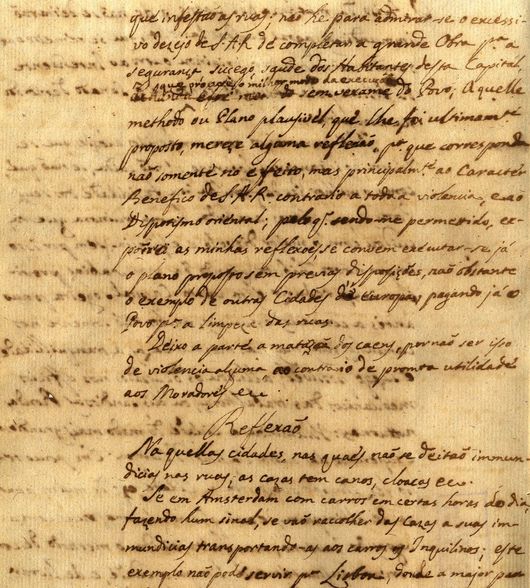 que infestão as ruas; não he para admirar-se o excessi-
vo dezejo de S.A.R. de completar a grande Obra pª. a
segurança, sucego, saude dos Habitantes desta Capital,
que pro o milhor modo da execução
sem vexame do Povo, Aquelle
methodo ou Plano plausivel, que lhe foi ultimamte
proposto, mereçe alguma reflexão, pª. que corresponda
não somente no effeito, mas principalmte. ao Caracter
Benefico de S.A.R. contrario a toda a violencia, e ao
Dispotismo oriental; pelo q. sendo-me permettido, ex-
porei as minhas reflexões, se convem executar-se já
o plano proposto sem previas disposições, não obstante
o exemplo de outras Cidades de Europa, pagando já o
Povo pª. a limpeza das ruas.
Deixo a parte a matação dos caens, por não ser isso
de violencia alguma ao contrario de promta utilidade
aos Moradores etc.
Reflexão
Naquellas cidades, nas quaes não se deitão immun-
dicias nas ruas, as cazas tem canos, cloacas etc.
Se em Amsterdam com carros em certas horas do dia,
fazendo hum sinal, se vão racolher das cazas a suas im-
mundicias transportando-as aos carros os Inquilinos; este
exemplo não pode servir pª. Lisboa, donde a major par